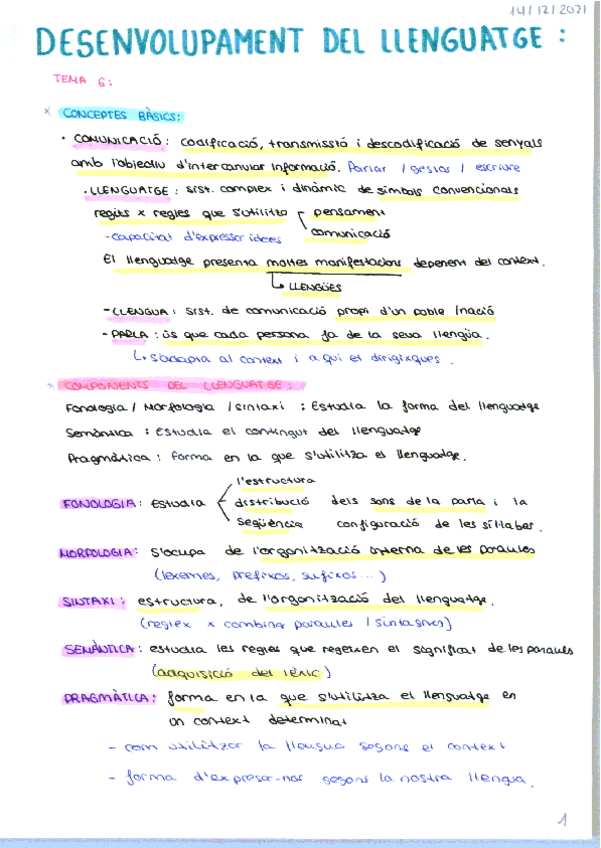 14/12/2021
DESENVOLUPAMENT DEL LLENGUATGE :
TEMA 6:
x CONCEPTES BÀSICS:
· COMUNICACIÓ: codificació, transmissió i descodificació de senyals
amb l'objectiu d'intercanviar informació. Parlar / gestos / escriure
· LLENGUATGE : sist. complex i dinàmic de símbols convencionals
regits x regles que s'utilitza pensament
comunicació
- capacitat d'expressar idees
El llenguatge presenta moltes manifestacions depenent del context.
↳ LLENGÜES
- LLENGUA: sist. de comunicació propi d'un poble / nació
- PARLA : ús que cada persona fa de la seva llengua.
↳ s'adapta al context i a qui et dirigixques.
x COMPONENTS DEL LLENGUATGE :
Fonologia / Morfologia / sintaxi : Estudia la forma del llenguatge
Semàntica : Estudia el contingut del llenguatge
Pragmàtica : forma en la que s'utilitza el llenguatge.
l'estructura
FONOLOGIA: Estudia distribució dels sons de la parla i la
seqüència configuració de les síl·labes.
MORFOLOGIA: s'ocupa de l'organització interna de les paraules
(lexemes, prefixos, sufixos...)
SINTAXI : estructura, de l'organització del llenguatge.
(regles x combinar paraules / sintagmes)
SEMÀNTICA: estudia les regles que regeixen el significat de les paraules
(adquisició del lèxic)
PRAGMÀTICA: forma en la que s'utilitza el llenguatge en
un context determinat
- com utilitzar la llengua segons el context
- forma d'expresar-nos segons la nostra llengua.
1